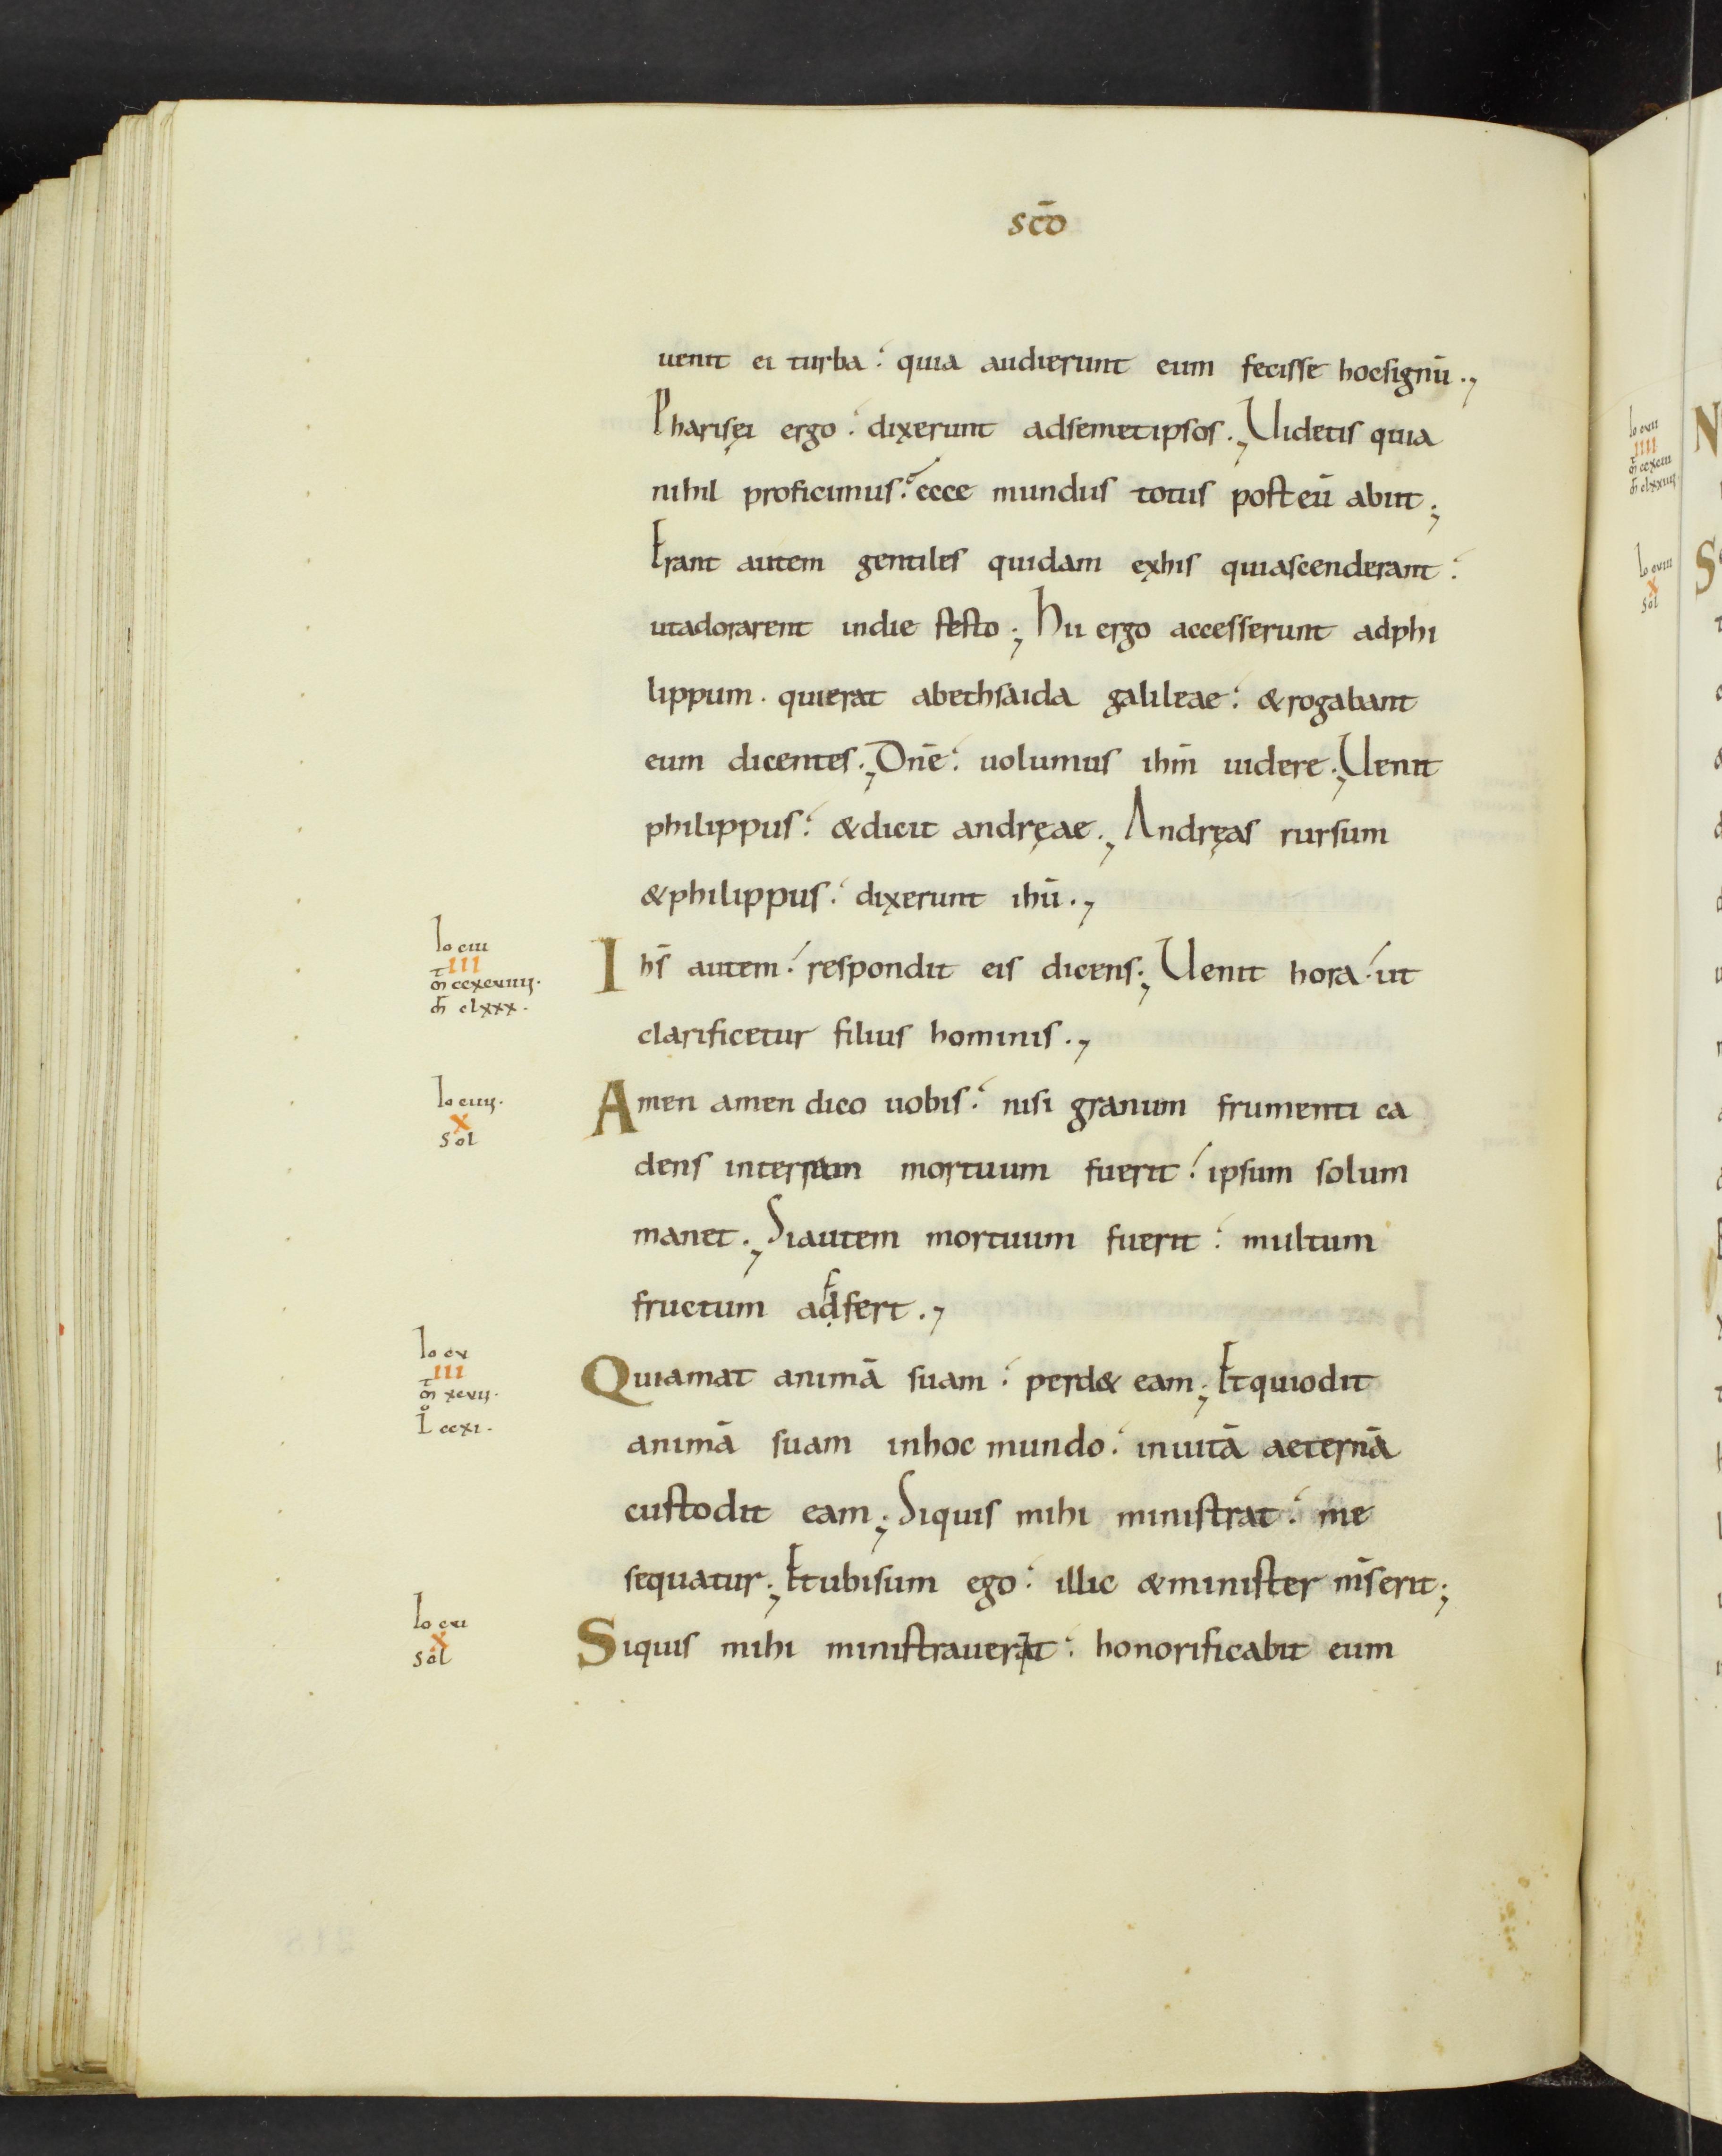 scō
uenit ei turba: quia audierunt eum fecisse hocsignū.,
Pharisęi ergo: dixerunt adsemetipsos., Uidetis quia
nihil proficimus: ecce mundus totus posteū abiit;
Erant autem gentiles quidam exhis quiascenderant:
utadorarent indie festo; Hii ergo accesserunt adphi
lippum. quierat abethsaida galileae: &rogabant
eum dicentes., Dn̄e: uolumus ihm̄ uidere., Uenit
philippus: &dicit andręae., Andręas rursum
&philippus: dixerunt ihū.,
Io ciii
III
m̄ ccxcviiii.
Ihs̄ autem: respondit eis dicens; Uenit hora: ut
clxxx.
clarificetur filius hominis.,
Io ciiii.
X
Sol
Amen amen dico uobis: nisi granum frumenti ca
dens interram mortuum fuerit: ipsum solum
manet., Siautem mortuum fuerit: multum
fructum adfert.,
Io cv
III
m̄ xcvii.
L ccxi.
Quiamat animā suam: perd& eam; Etquiodit
animā suam inhoc mundo: inuitā aeternā
custodit eam; Siquis mihi ministrat: me
sequatur., Etubisum ego: illic &minister m̄s erit;
Io cvi
X
Sol
Siquis mihi ministrauerit: honorificabit eum